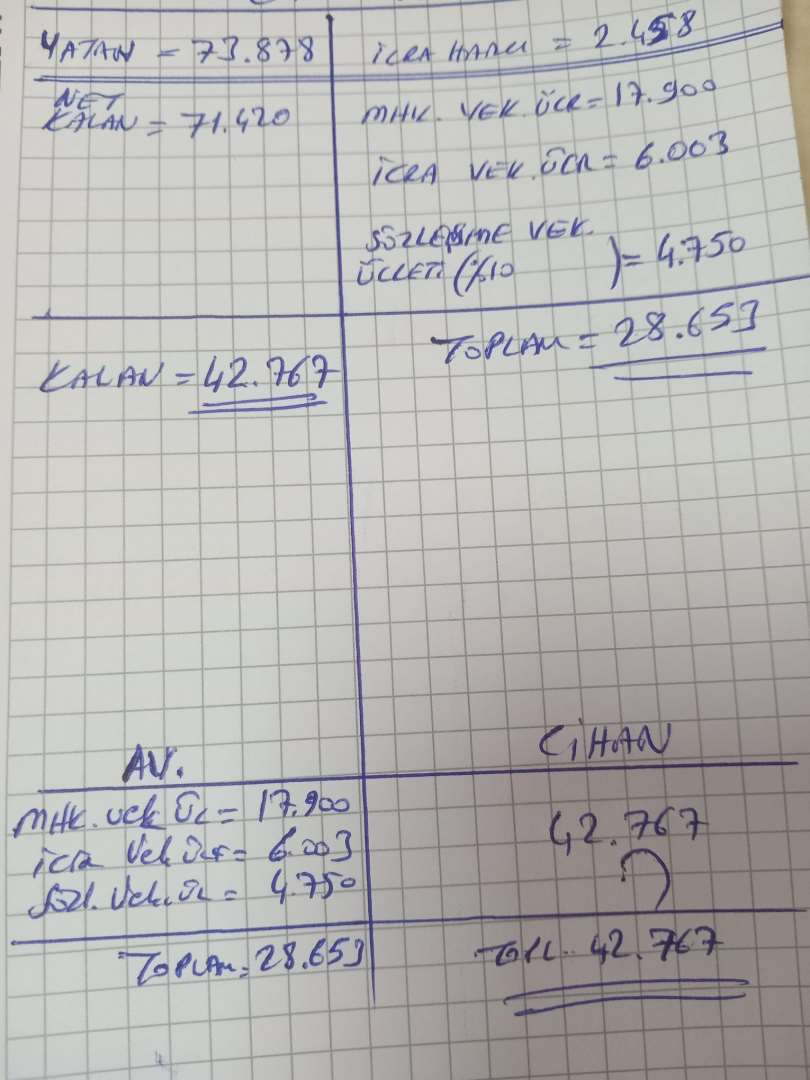 YATAN = 73.878
İCRA HARCI = 2.458
NET
KALAN = 71.420
MHK. VEK. ÜCR = 17.900
İCRA VEK. ÜCR = 6.003
SÖZLEŞME VEK.
ÜCRETİ (%10 ) = 4.750
TOPLAM = 28.653
KALAN = 42.767
AV.
CİHAN
MHK. vek Üc = 17.900
icra Vek Ücr = 6.003
Sözl. Vek. Üc = 4.750
42.767
TOPLAM = 28.653
42.767